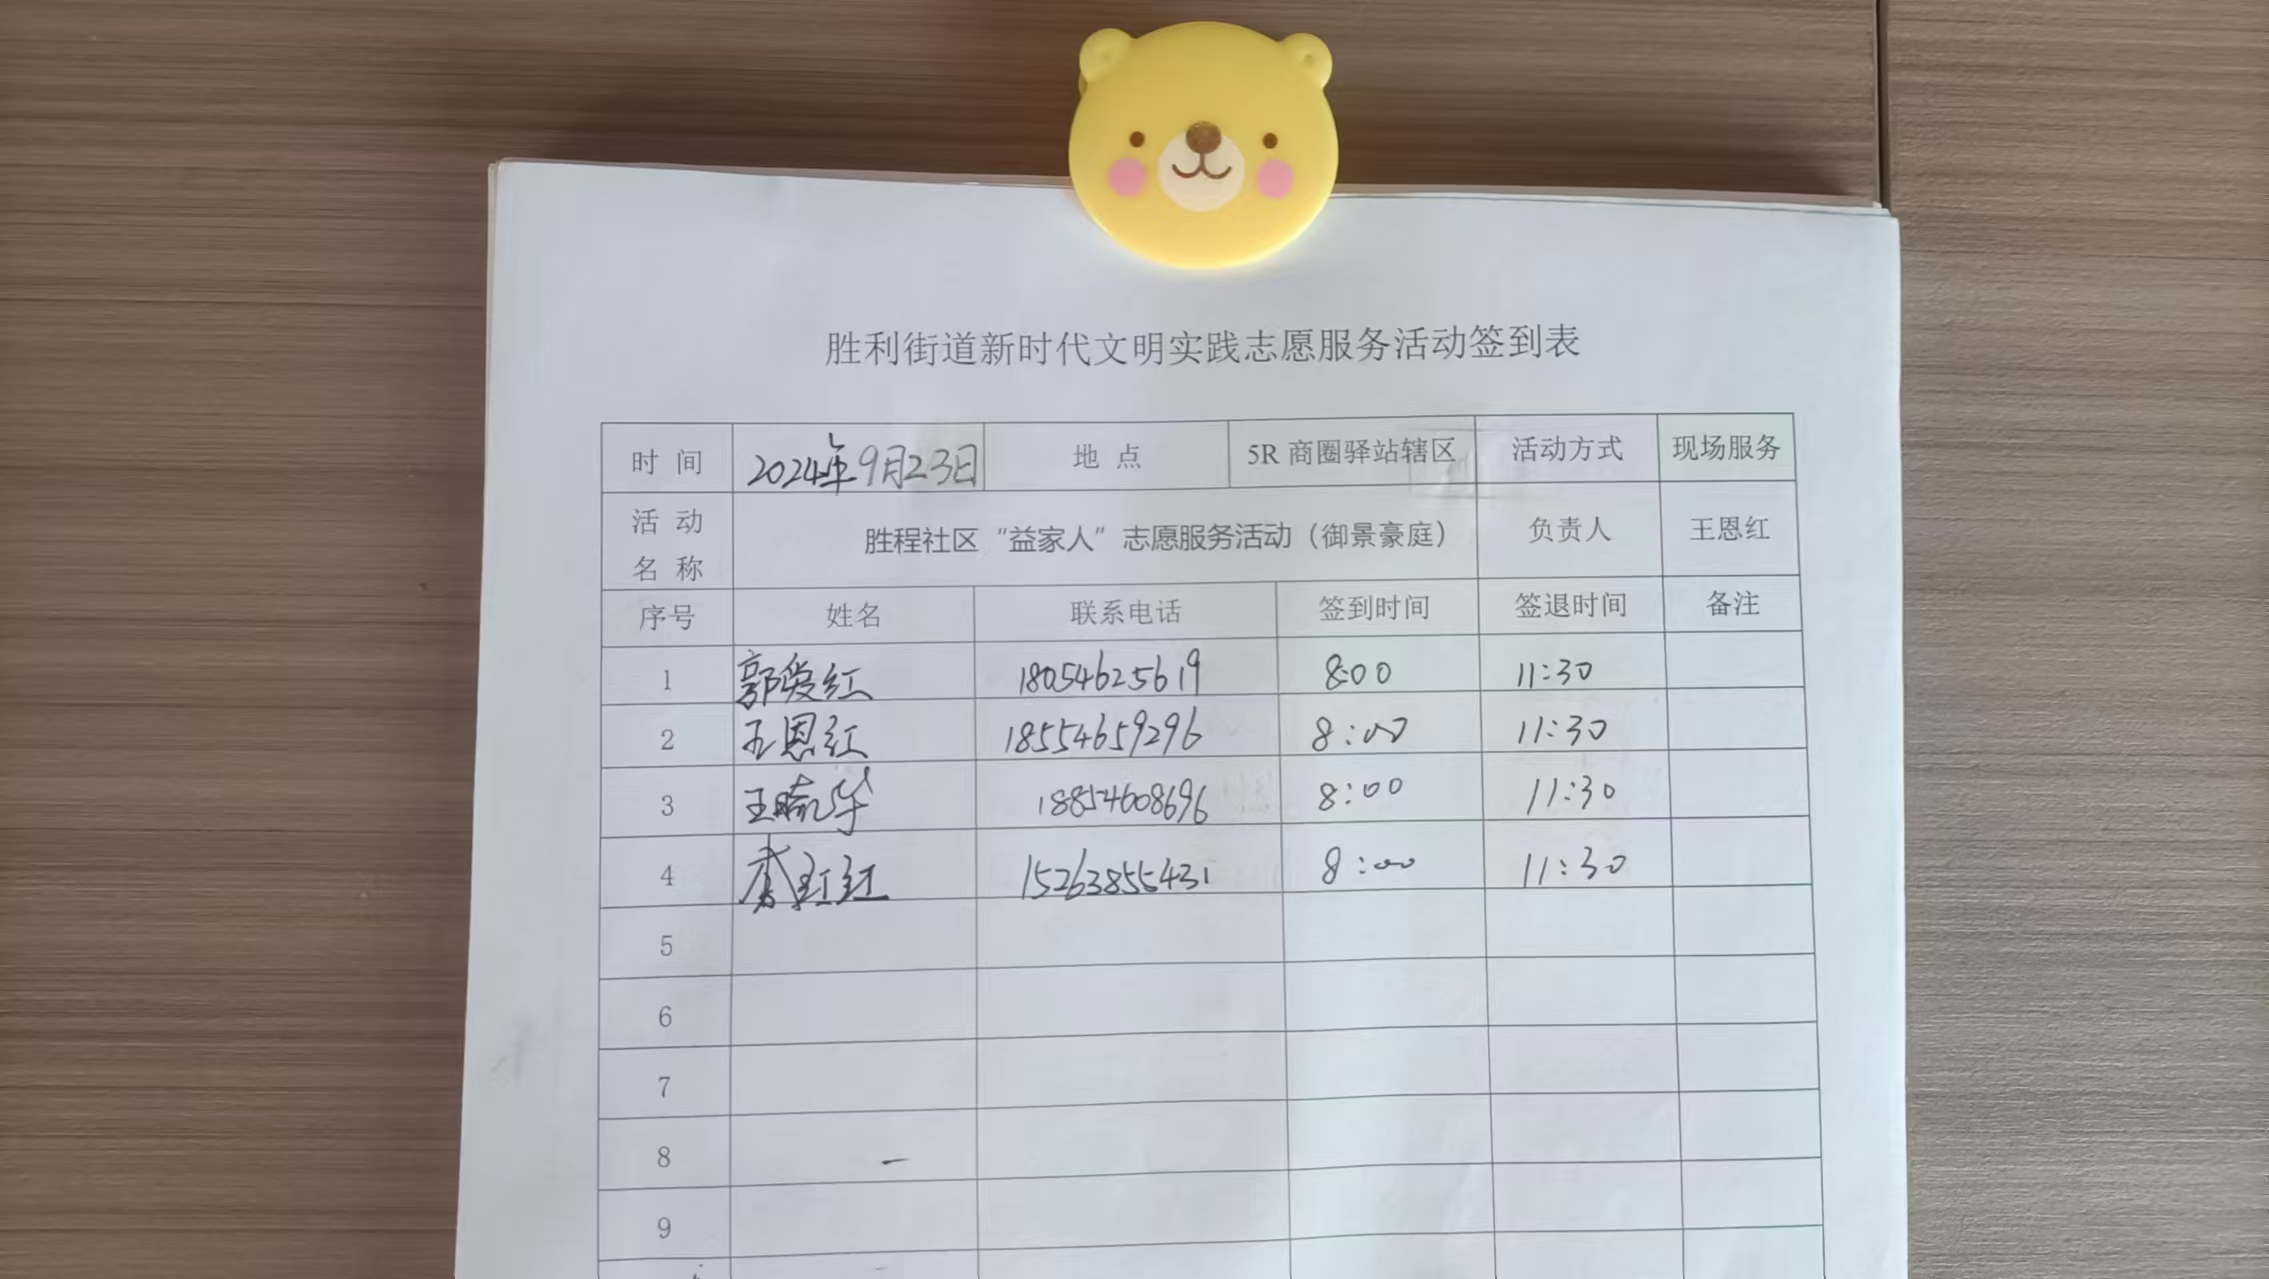 胜利街道新时代文明实践志愿服务活动签到表
时 间 2024年9月23日 地 点 5R 商圈驿站辖区 活动方式 现场服务
活 动
名 称 胜程社区“益家人”志愿服务活动（御景豪庭） 负责人 王恩红
序号 姓名 联系电话 签到时间 签退时间 备注
1 郭爱红 18054625619 8:00 11:30
2 王恩红 18554659296 8:00 11:30
3 18854608696 8:00 11:30
4 15263855431 8:00 11:30
5
6
7
8
9